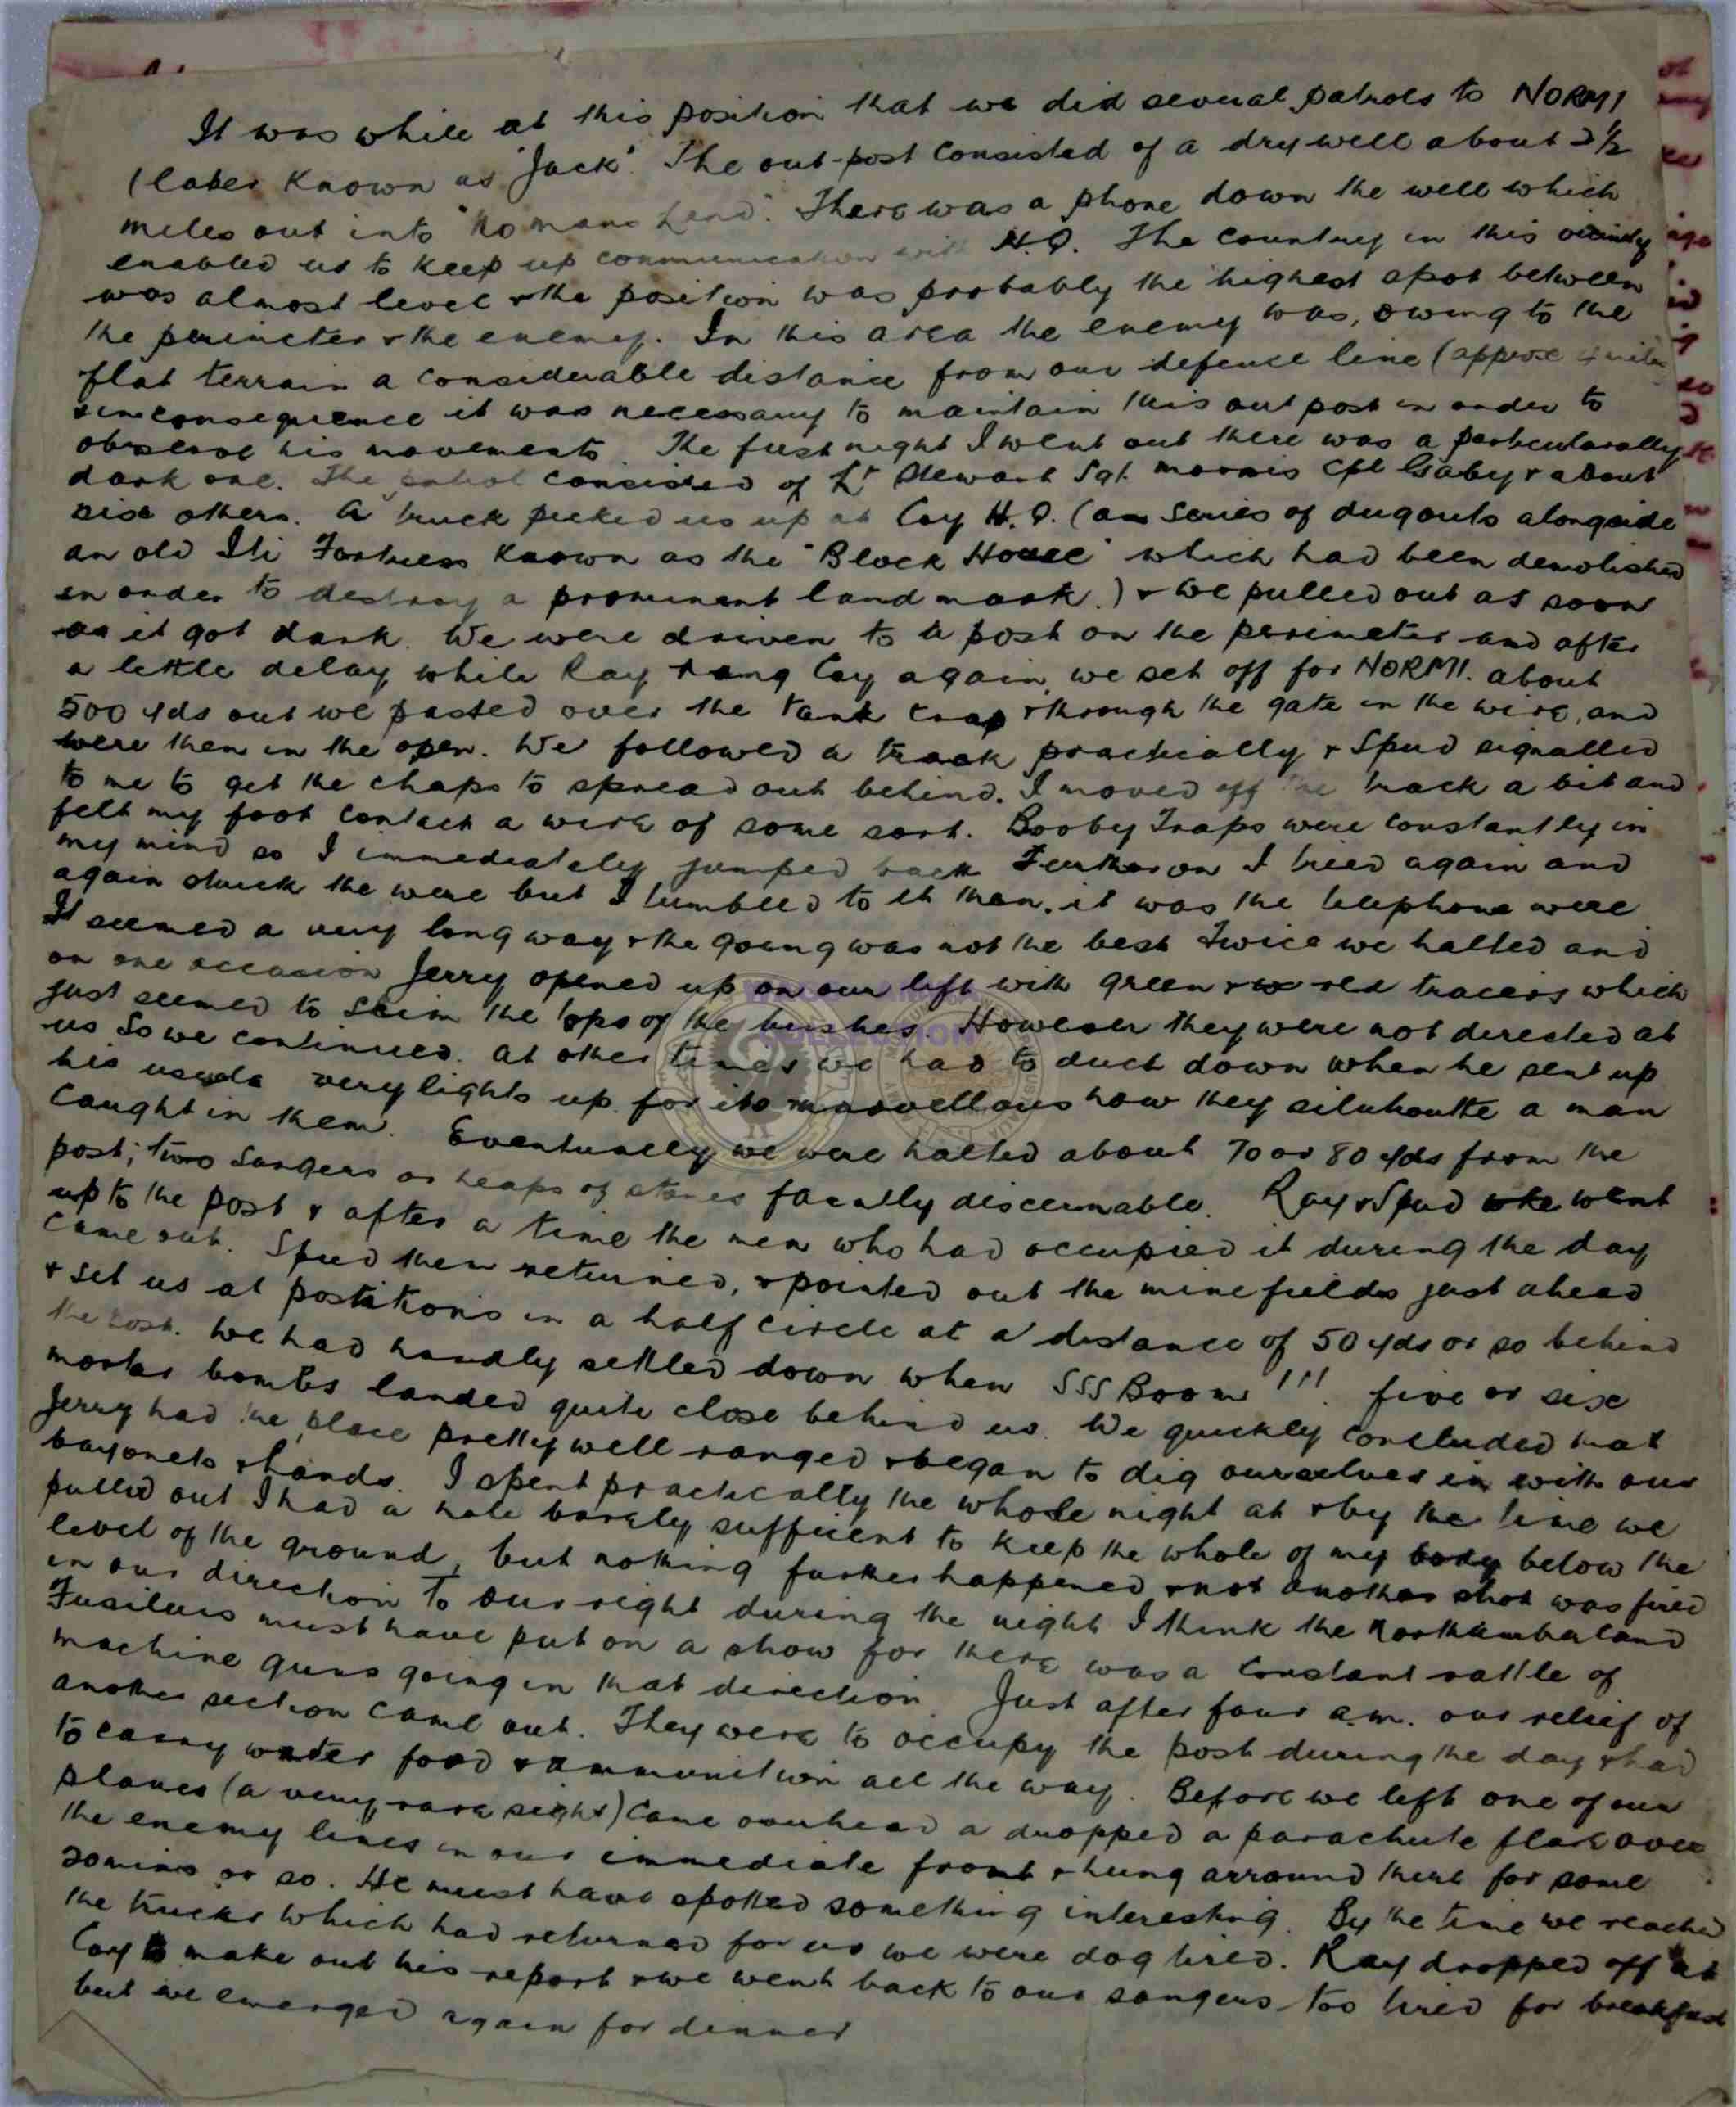 It was while at this position that we did several patrols to NORM!
(later known as "Jack". The out-post consisted of a dry well about 2½
miles out into "No mans Land". There was a phone down the well which
enabled us to keep up communication with H.Q. The country in this vicinity
was almost level & the position was probably the highest spot between
the perimeter & the enemy. In this area the enemy was, owing to the
flat terrain a considerable distance from our defence line (approx 4 miles
& in consequence it was necessary to maintain this out post in order to
observe his movements. The first night I went out there was a particularally
dark one. The patrol consisted of Lt Stewart Sgt. Morris Cpl Gaby & about
six others. A truck picked us up at Coy H.Q. (a series of dugouts alongside
an old Iti Fortress known as the "Block House" which had been demolished
in order to destroy a prominent land mark.) & we pulled out as soon
as it got dark. We were driven to a post on the perimeter and after
a little delay while Ray rang Coy again, we set off for NORM!. about
500 yds out we passed over the tank trap & through the gate in the wire, and
were then in the open. We followed a track practically & Spud signalled
to me to get the chaps to spread out behind. I moved off the track a bit and
felt my foot contact a wire of some sort. Booby Traps were constantly in
my mind so I immediately jumped back Further on I tried again and
again struck the wire but I tumbled to it then, it was the telephone wire
It seemed a very long way & the going was not the best Twice we halted and
on one occasion Jerry opened up on our left with green & red tracers which
just seemed to skim the tops of the bushes. However they were not directed at
us so we continued. At other times we had to duck down when he sent up
his very lights up for its marvellous how they siluhoutte a man
caught in them. Eventually we were halted about 70 or 80 yds from the
post; two Sangers or heaps of stones faintly discernable. Ray & Spud went
up to the post & after a time the men who had occupied it during the day
came out. Spud then returned, & pointed out the minefields just ahead
& set us at postitions in a half circle at a distance of 50 yds or so behind
the post. We had hardly settled down when SSS Boom!!! five or six
mortar bombs landed quite close behind us. We quickly concluded that
Jerry had the place pretty well ranged & began to dig ourselves in with our
bayonets & hands. I spent practically the whole night at & by the time we
pulled out I had a hole barely sufficient to keep the whole of my body below the
level of the ground, but nothing further happened & not another shot was fired
in our direction To our right during the night I think the Northumberland
Fusiliers must have put on a show for there was a constant rattle of
machine guns going in that direction. Just after four a.m. our relief of
another section came out. They were to occupy the post during the day & had
to carry water food & ammunition all the way. Before we left one of our
planes (a very rare sight) came overhead a dropped a parachute flare over
the enemy lines in our immediate front & hung arround there for some
20 mins or so. He must have spotted something interesting. By the time we reached
the trucks which had returned for us we were dog tired. Ray dropped off at
Coy to make out his report & we went back to our sangers too tired for breakfast
but we emerged again for dinner